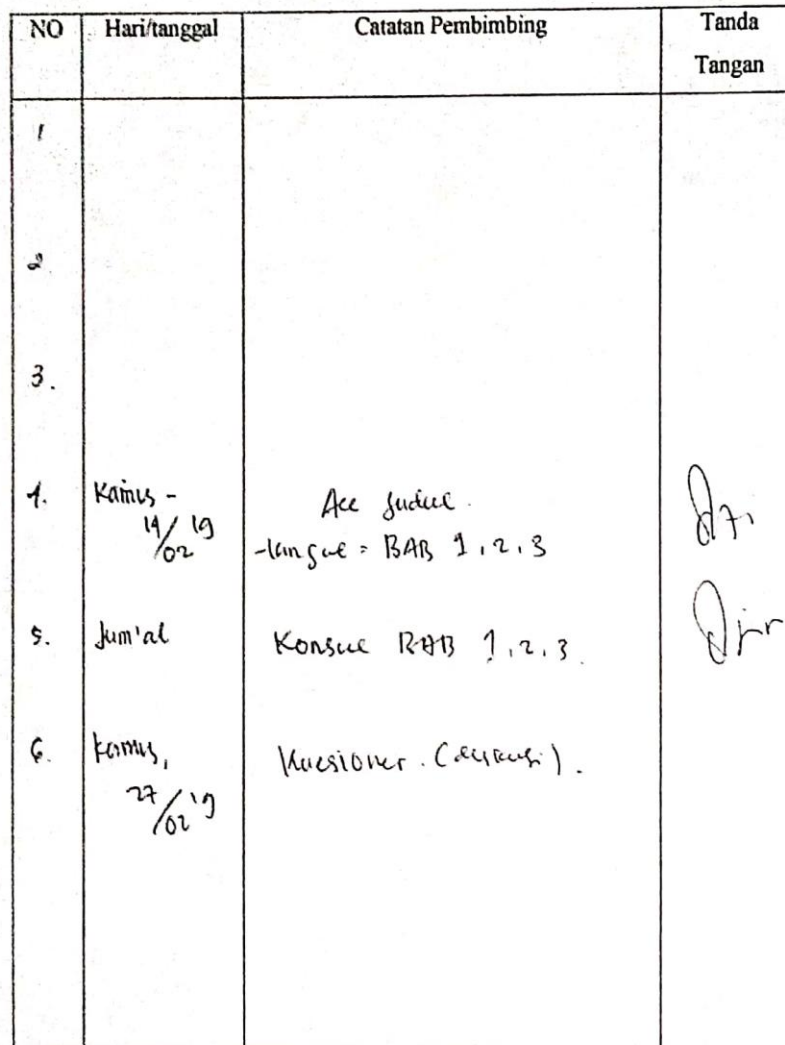 NO Hari/tanggal Catatan Pembimbing Tanda Tangan
1
2
3.
4. Kamis - 14/02 19 Acc Judul.
- lanjut = BAB 1, 2, 3
5. Jum'at Konsul BAB 1, 2, 3.
6. Kamis, 27/02 '19 Kuesioner.